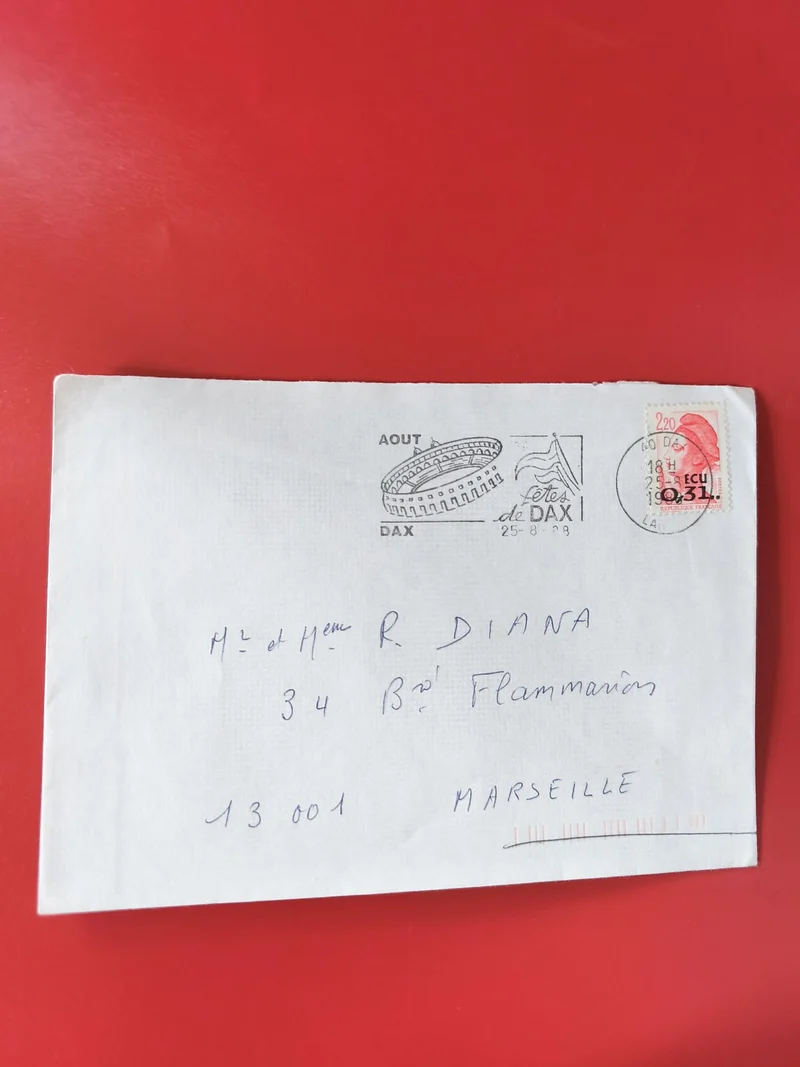 AOUT
fêtes
de DAX
DAX
25-8-88
2,20
AO DAX
18 H
25-8
19
LA
ECU
0,31
REPUBLIQUE FRANÇAISE
Mr et Meme R. DIANA
34 Brd Flammarion
13 001 MARSEILLE